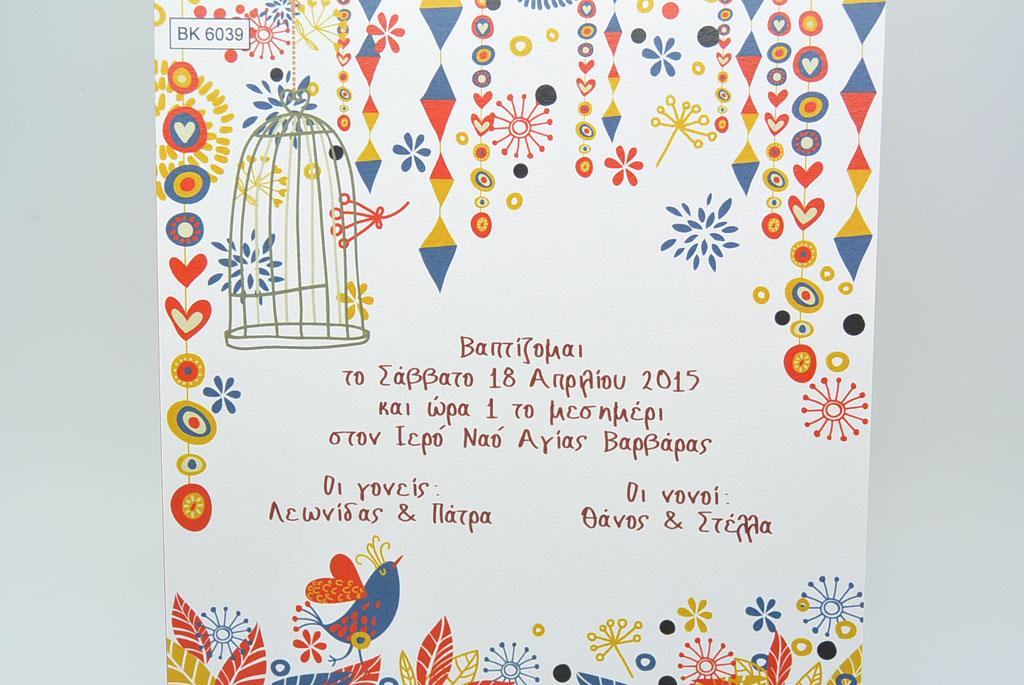 BK 6039
Βαπτίζομαι
το Σάββατο 18 Απριλίου 2015
και ώρα 1 το μεσημέρι
στον Ιερό Ναό Αγίας Βαρβάρας
Οι γονείς:
Λεωνίδας & Πάτρα
Οι νονοί:
Θάνος & Στέλλα